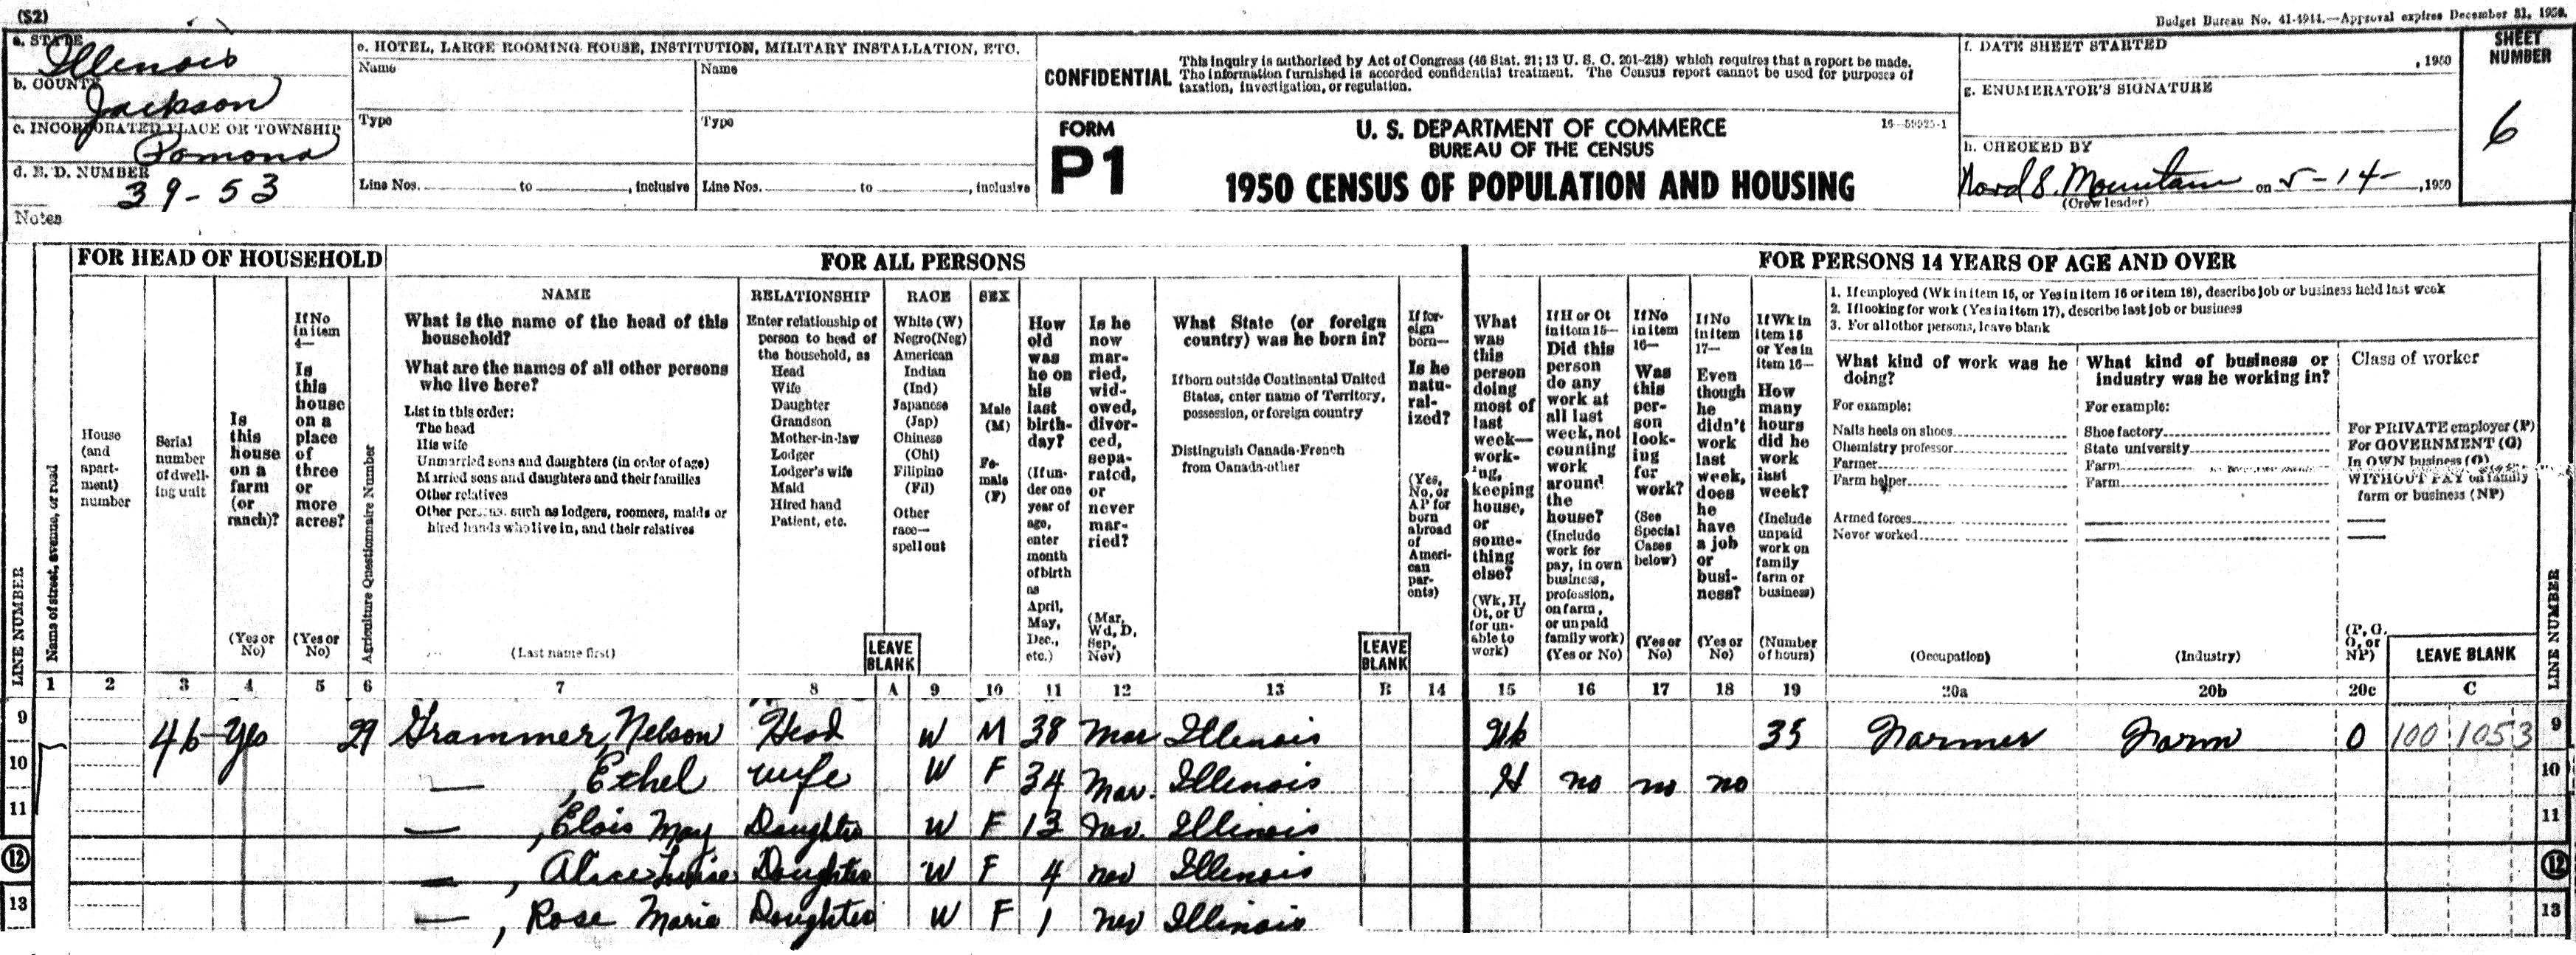 (S2)
Budget Bureau No. 41-4944.—Approval expires December 31, 1950.
a. STATE
Illinois
b. COUNTY
Jackson
c. INCORPORATED PLACE OR TOWNSHIP
Pomona
d. E. D. NUMBER
39-53
Notes
e. HOTEL, LARGE ROOMING HOUSE, INSTITUTION, MILITARY INSTALLATION, ETC.
Name Name
Type Type
Line Nos. to , inclusive Line Nos. to , inclusive
CONFIDENTIAL
This inquiry is authorized by Act of Congress (46 Stat. 21; 13 U. S. C. 201-218) which requires that a report be made.
The information furnished is accorded confidential treatment. The Census report cannot be used for purposes of
taxation, investigation, or regulation.
FORM
P1
U. S. DEPARTMENT OF COMMERCE
BUREAU OF THE CENSUS
1950 CENSUS OF POPULATION AND HOUSING
16—59925-1
f. DATE SHEET STARTED
, 1950
g. ENUMERATOR'S SIGNATURE
h. CHECKED BY
Mountain on 5-14- , 1950
(Crew leader)
SHEET
NUMBER
6
FOR HEAD OF HOUSEHOLD
FOR ALL PERSONS
FOR PERSONS 14 YEARS OF AGE AND OVER
LINE NUMBER
Name of street, avenue, or road
House
(and
apart-
ment)
number
Serial
number
of dwell-
ing unit
Is
this
house
on a
farm
(or
ranch)?
(Yes or
No)
If No
in item
4—
Is
this
house
on a
place
of
three
or
more
acres?
(Yes or
No)
Agriculture Questionnaire Number
NAME
What is the name of the head of this
household?
What are the names of all other persons
who live here?
List in this order:
The head
His wife
Unmarried sons and daughters (in order of age)
Married sons and daughters and their families
Other relatives
Other persons, such as lodgers, roomers, maids or
hired hands who live in, and their relatives
(Last name first)
RELATIONSHIP
Enter relationship of
person to head of
the household, as
Head
Wife
Daughter
Grandson
Mother-in-law
Lodger
Lodger's wife
Maid
Hired hand
Patient, etc.
LEAVE
BLANK
RACE
White (W)
Negro(Neg)
American
Indian
(Ind)
Japanese
(Jap)
Chinese
(Chi)
Filipino
(Fil)
Other
race—
spell out
SEX
Male
(M)
Fe-
male
(F)
How
old
was
he on
his
last
birth-
day?
(If un-
der one
year of
age,
enter
month
of birth
as
April,
May,
Dec.,
etc.)
Is he
now
mar-
ried,
wid-
owed,
divor-
ced,
sepa-
rated,
or
never
mar-
ried?
(Mar,
Wd, D,
Sep,
Nev)
What State (or foreign
country) was he born in?
If born outside Continental United
States, enter name of Territory,
possession, or foreign country
Distinguish Canada-French
from Canada-other
LEAVE
BLANK
If for-
eign
born—
Is he
natu-
ral-
ized?
(Yes,
No, or
AP for
born
abroad
of
Ameri-
can
par-
ents)
What
was
this
person
doing
most of
last
week—
work-
ing,
keeping
house,
or
some-
thing
else?
(Wk, H,
Ot, or U
for un-
able to
work)
If H or Ot
in item 15—
Did this
person
do any
work at
all last
week, not
counting
work
around
the
house?
(Include
work for
pay, in own
business,
profession,
on farm,
or unpaid
family work)
(Yes or No)
If No
in item
16—
Was
this
per-
son
look-
ing
for
work?
(See
Special
Cases
below)
(Yes or
No)
If No
in item
17—
Even
though
he
didn't
work
last
week,
does
he
have
a job
or
busi-
ness?
(Yes or
No)
If Wk in
item 15
or Yes in
item 16—
How
many
hours
did he
work
last
week?
(Include
unpaid
work on
family
farm or
business)
(Number
of hours)
1. If employed (Wk in item 15, or Yes in item 16 or item 18), describe job or business held last week
2. If looking for work (Yes in item 17), describe last job or business
3. For all other persons, leave blank
What kind of work was he
doing?
For example:
Nails heels on shoes
Chemistry professor
Farmer
Farm helper
Armed forces
Never worked
(Occupation)
What kind of business or
industry was he working in?
For example:
Shoe factory
State university
Farm
Farm
(Industry)
Class of worker
For PRIVATE employer (P)
For GOVERNMENT (G)
In OWN business (O)
WITHOUT PAY on family
farm or business (NP)
(P, G,
O, or
NP)
LEAVE BLANK
LINE NUMBER
1 2 3 4 5 6 7 8 A 9 10 11 12 13 B 14 15 16 17 18 19 20a 20b 20c C
9 46 Yes 29 Grammer, Nelson Head W M 38 Mar Illinois Wk 35 Farmer Farm O 100 105 3 9
10 — , Ethel wife W F 34 Mar. Illinois H no no no 10
11 — , Elois May Daughter W F 13 nev. Illinois 11
12 — , Alice Luise Daughter W F 4 nev Illinois 12
13 — , Rose Marie Daughter W F 1 nev Illinois 13